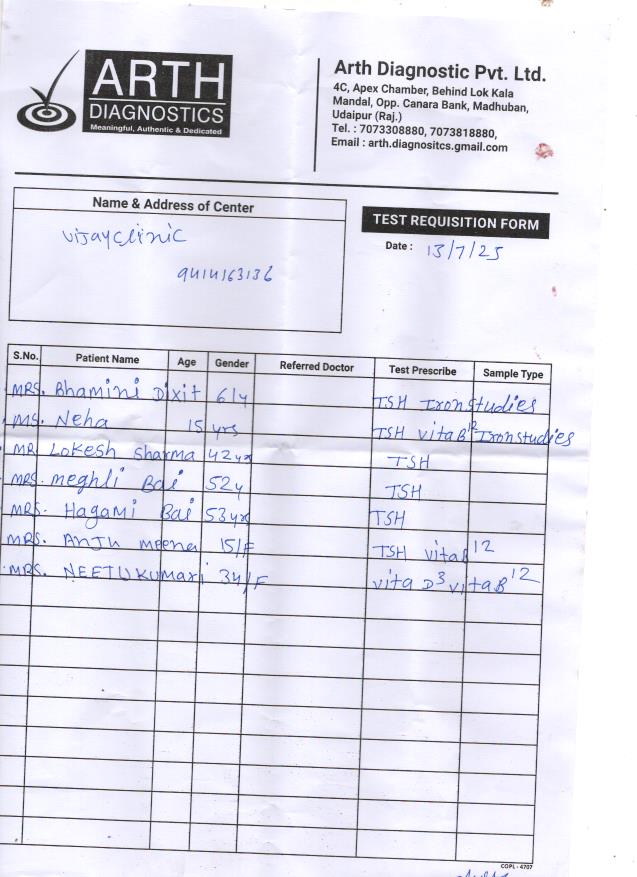 ARTH
DIAGNOSTICS
Meaningful, Authentic & Dedicated
Arth Diagnostic Pvt. Ltd.
4C, Apex Chamber, Behind Lok Kala
Mandal, Opp. Canara Bank, Madhuban,
Udaipur (Raj.)
Tel. : 7073308880, 7073818880,
Email : arth.diagnositcs.gmail.com
Name & Address of Center
Vijay clinic
9414163136
TEST REQUISITION FORM
Date : 13/7/25
S.No. Patient Name Age Gender Referred Doctor Test Prescribe Sample Type
MRS. Bhamini Dixit 61y TSH Iron studies
MS. Neha 15 yrs TSH vita B12 Iron studies
MR Lokesh Sharma 42yr TSH
MRS. meghli Bai 52y TSH
MRS. Hagami Bai 53yr TSH
MRS. Anju meena 15/F TSH vita B12
MRS. NEETU Kumari 34/F vita D3 vita B12
COPL - 4707